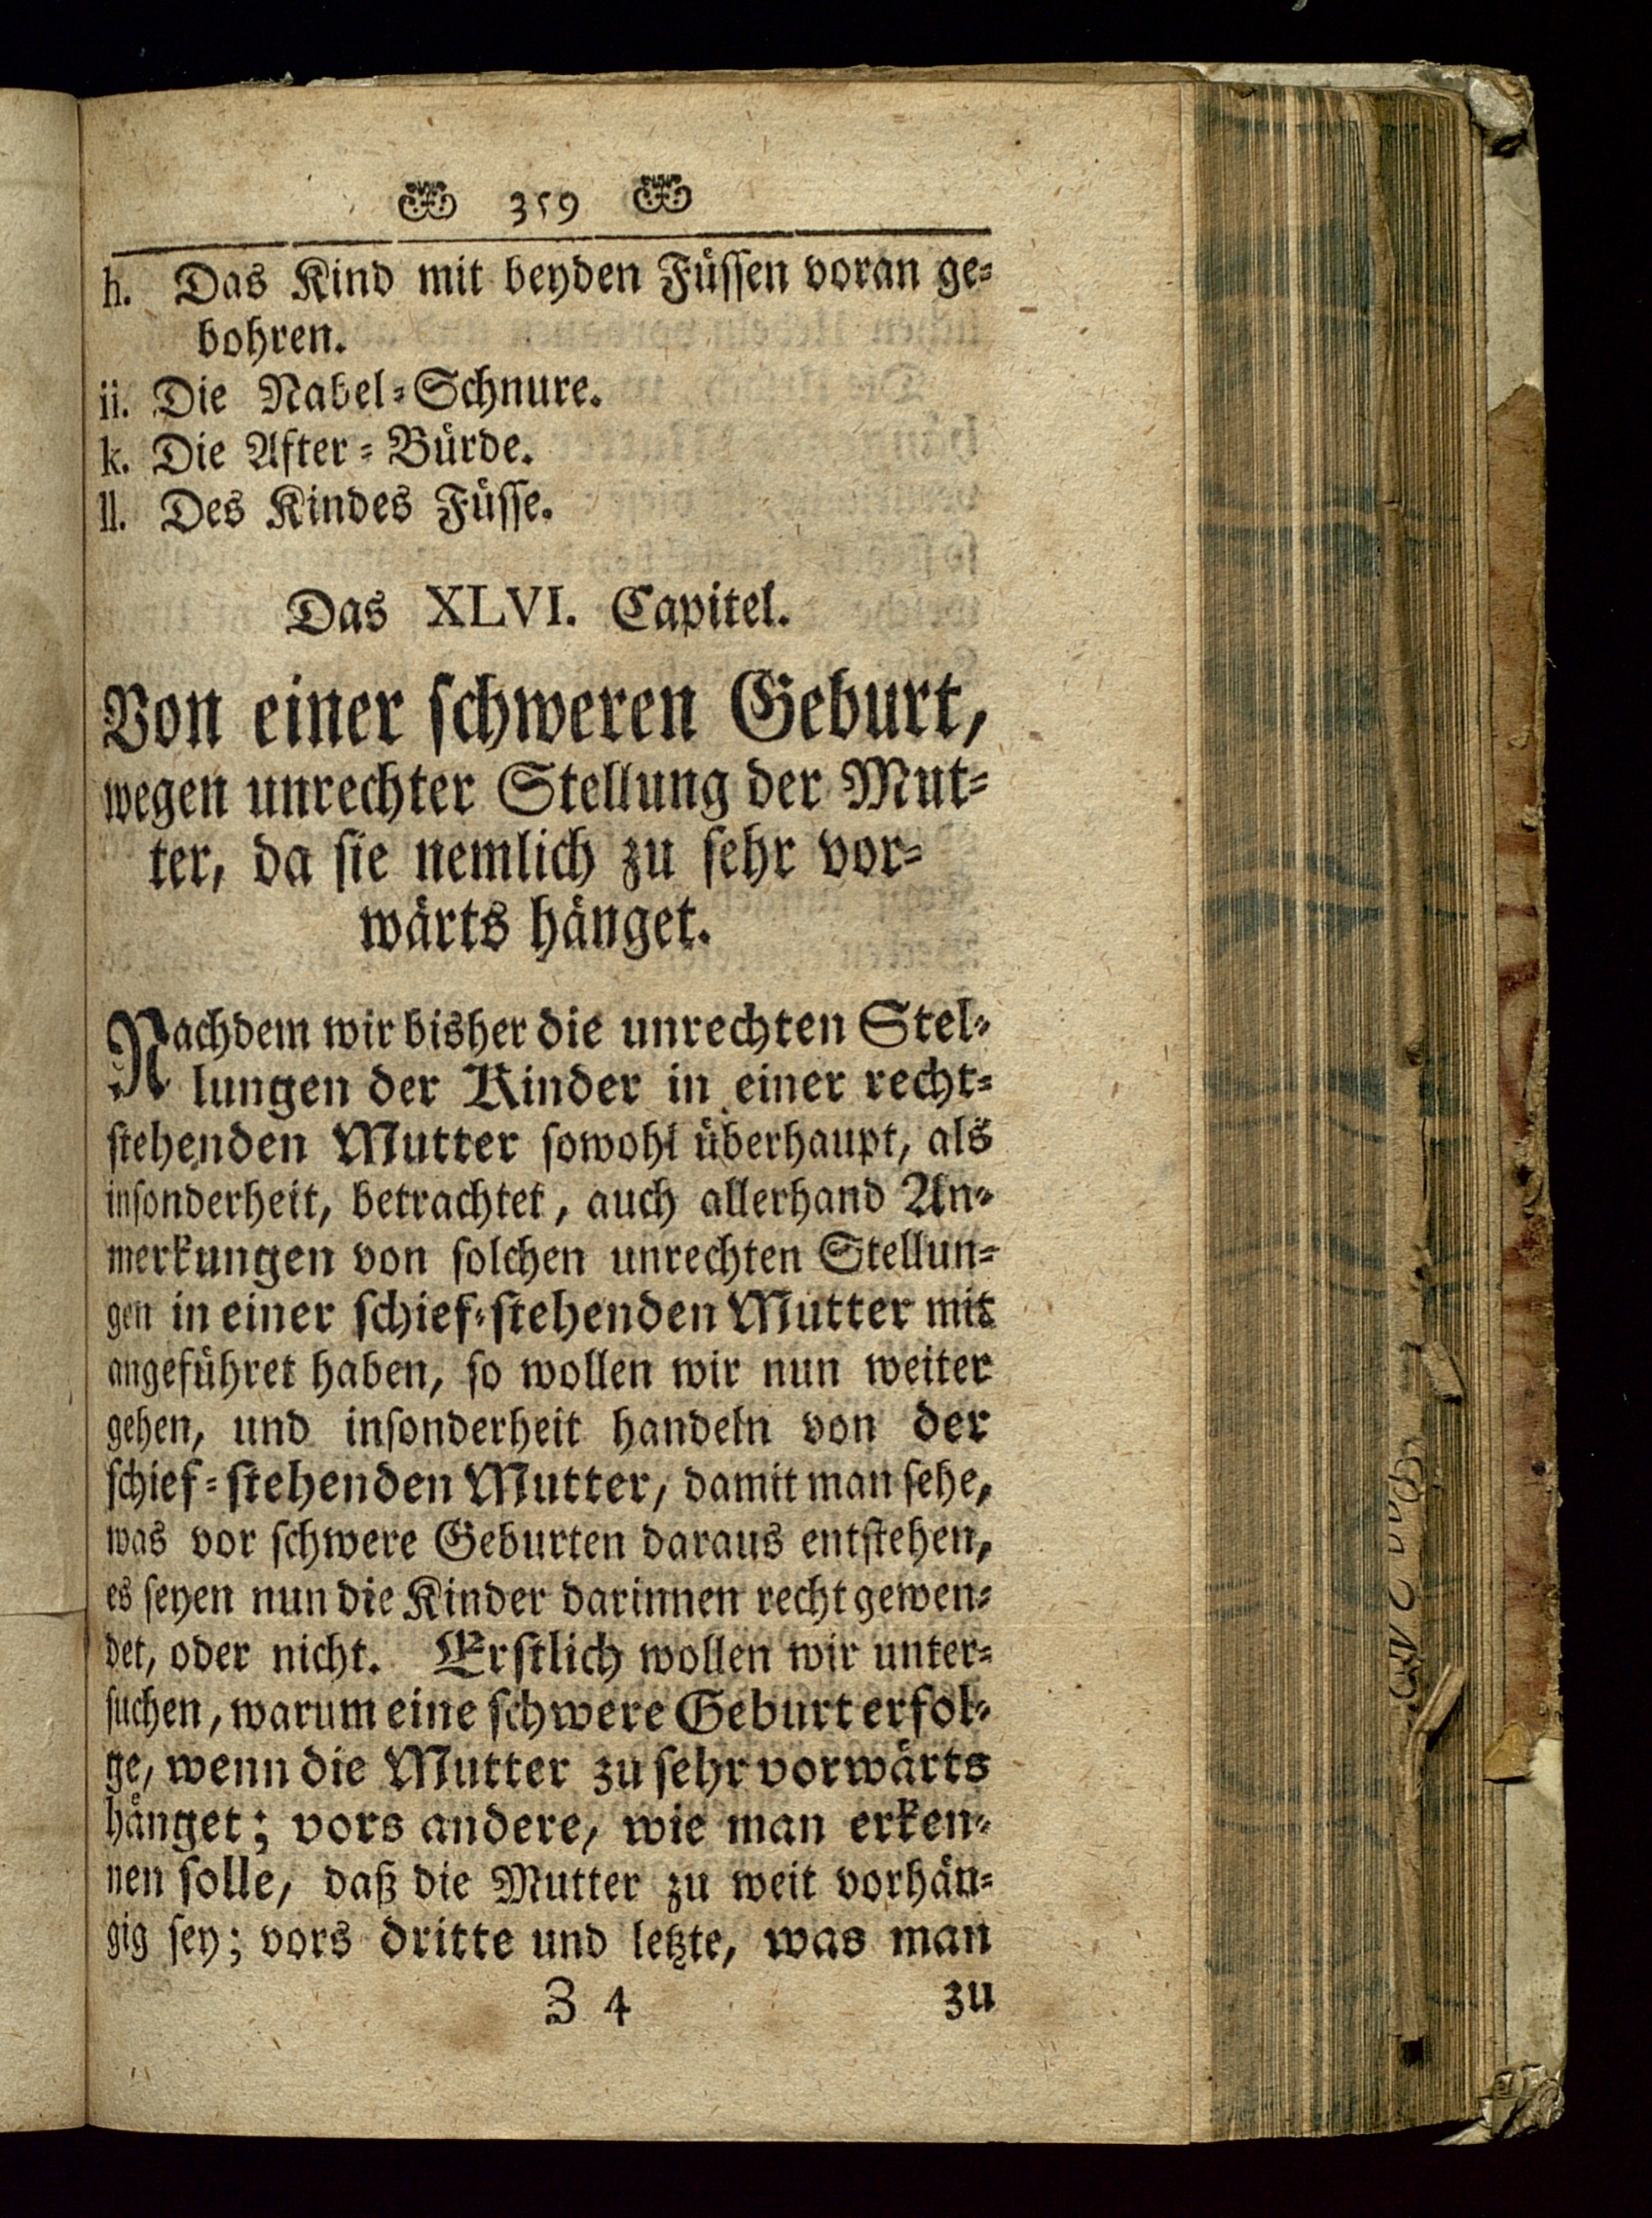 359
h. Das Kind mit beyden Füssen voran ge-
bohren.
ii. Die Nabel-Schnure.
k. Die After-Bürde.
ll. Des Kindes Füsse.
Das XLVI. Capitel.
Von einer schweren Geburt,
wegen unrechter Stellung der Mut-
ter, da sie nemlich zu sehr vor-
wärts hänget.
Nachdem wir bisher die unrechten Stel-
lungen der Kinder in einer recht-
stehenden Mutter sowohl überhaupt, als
insonderheit, betrachtet, auch allerhand An-
merkungen von solchen unrechten Stellun-
gen in einer schief-stehenden Mutter mit
angeführet haben, so wollen wir nun weiter
gehen, und insonderheit handeln von der
schief-stehenden Mutter, damit man sehe,
was vor schwere Geburten daraus entstehen,
es seyen nun die Kinder darinnen recht gewen-
det, oder nicht. Erstlich wollen wir unter-
suchen, warum eine schwere Geburt erfol-
ge, wenn die Mutter zu sehr vorwärts
hänget; vors andere, wie man erken-
nen solle, daß die Mutter zu weit vorhän-
gig sey; vors dritte und letzte, was man
Z 4 zu